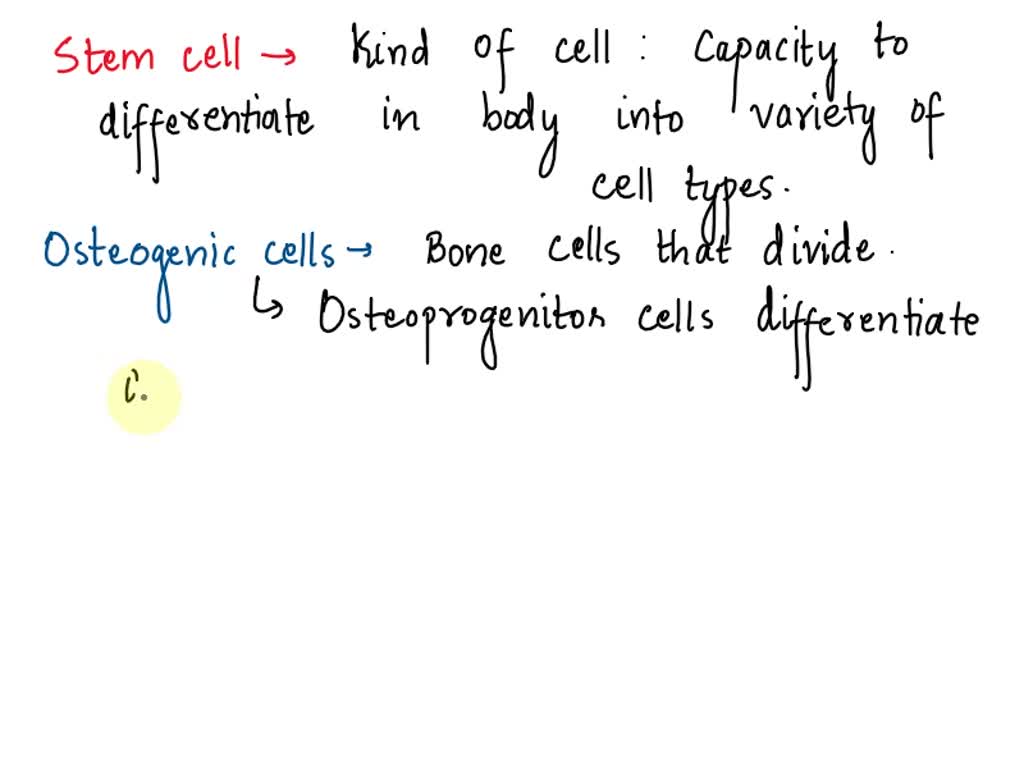 Stem cell → Kind of cell : Capacity to
differentiate in body into variety of
cell types.
Osteogenic cells → Bone cells that divide.
↳ Osteoprogenitor cells differentiate